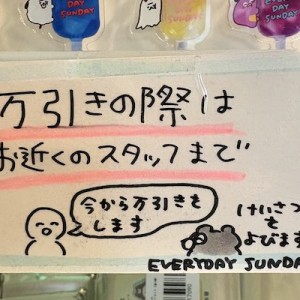 DAY
SUNDAY
DAY
SUNDAY
DAY
SUNDAY
万引きの際は
お近くのスタッフまで
今から万引きを
します
けいさつ
を
よびます
EVERYDAY SUNDA